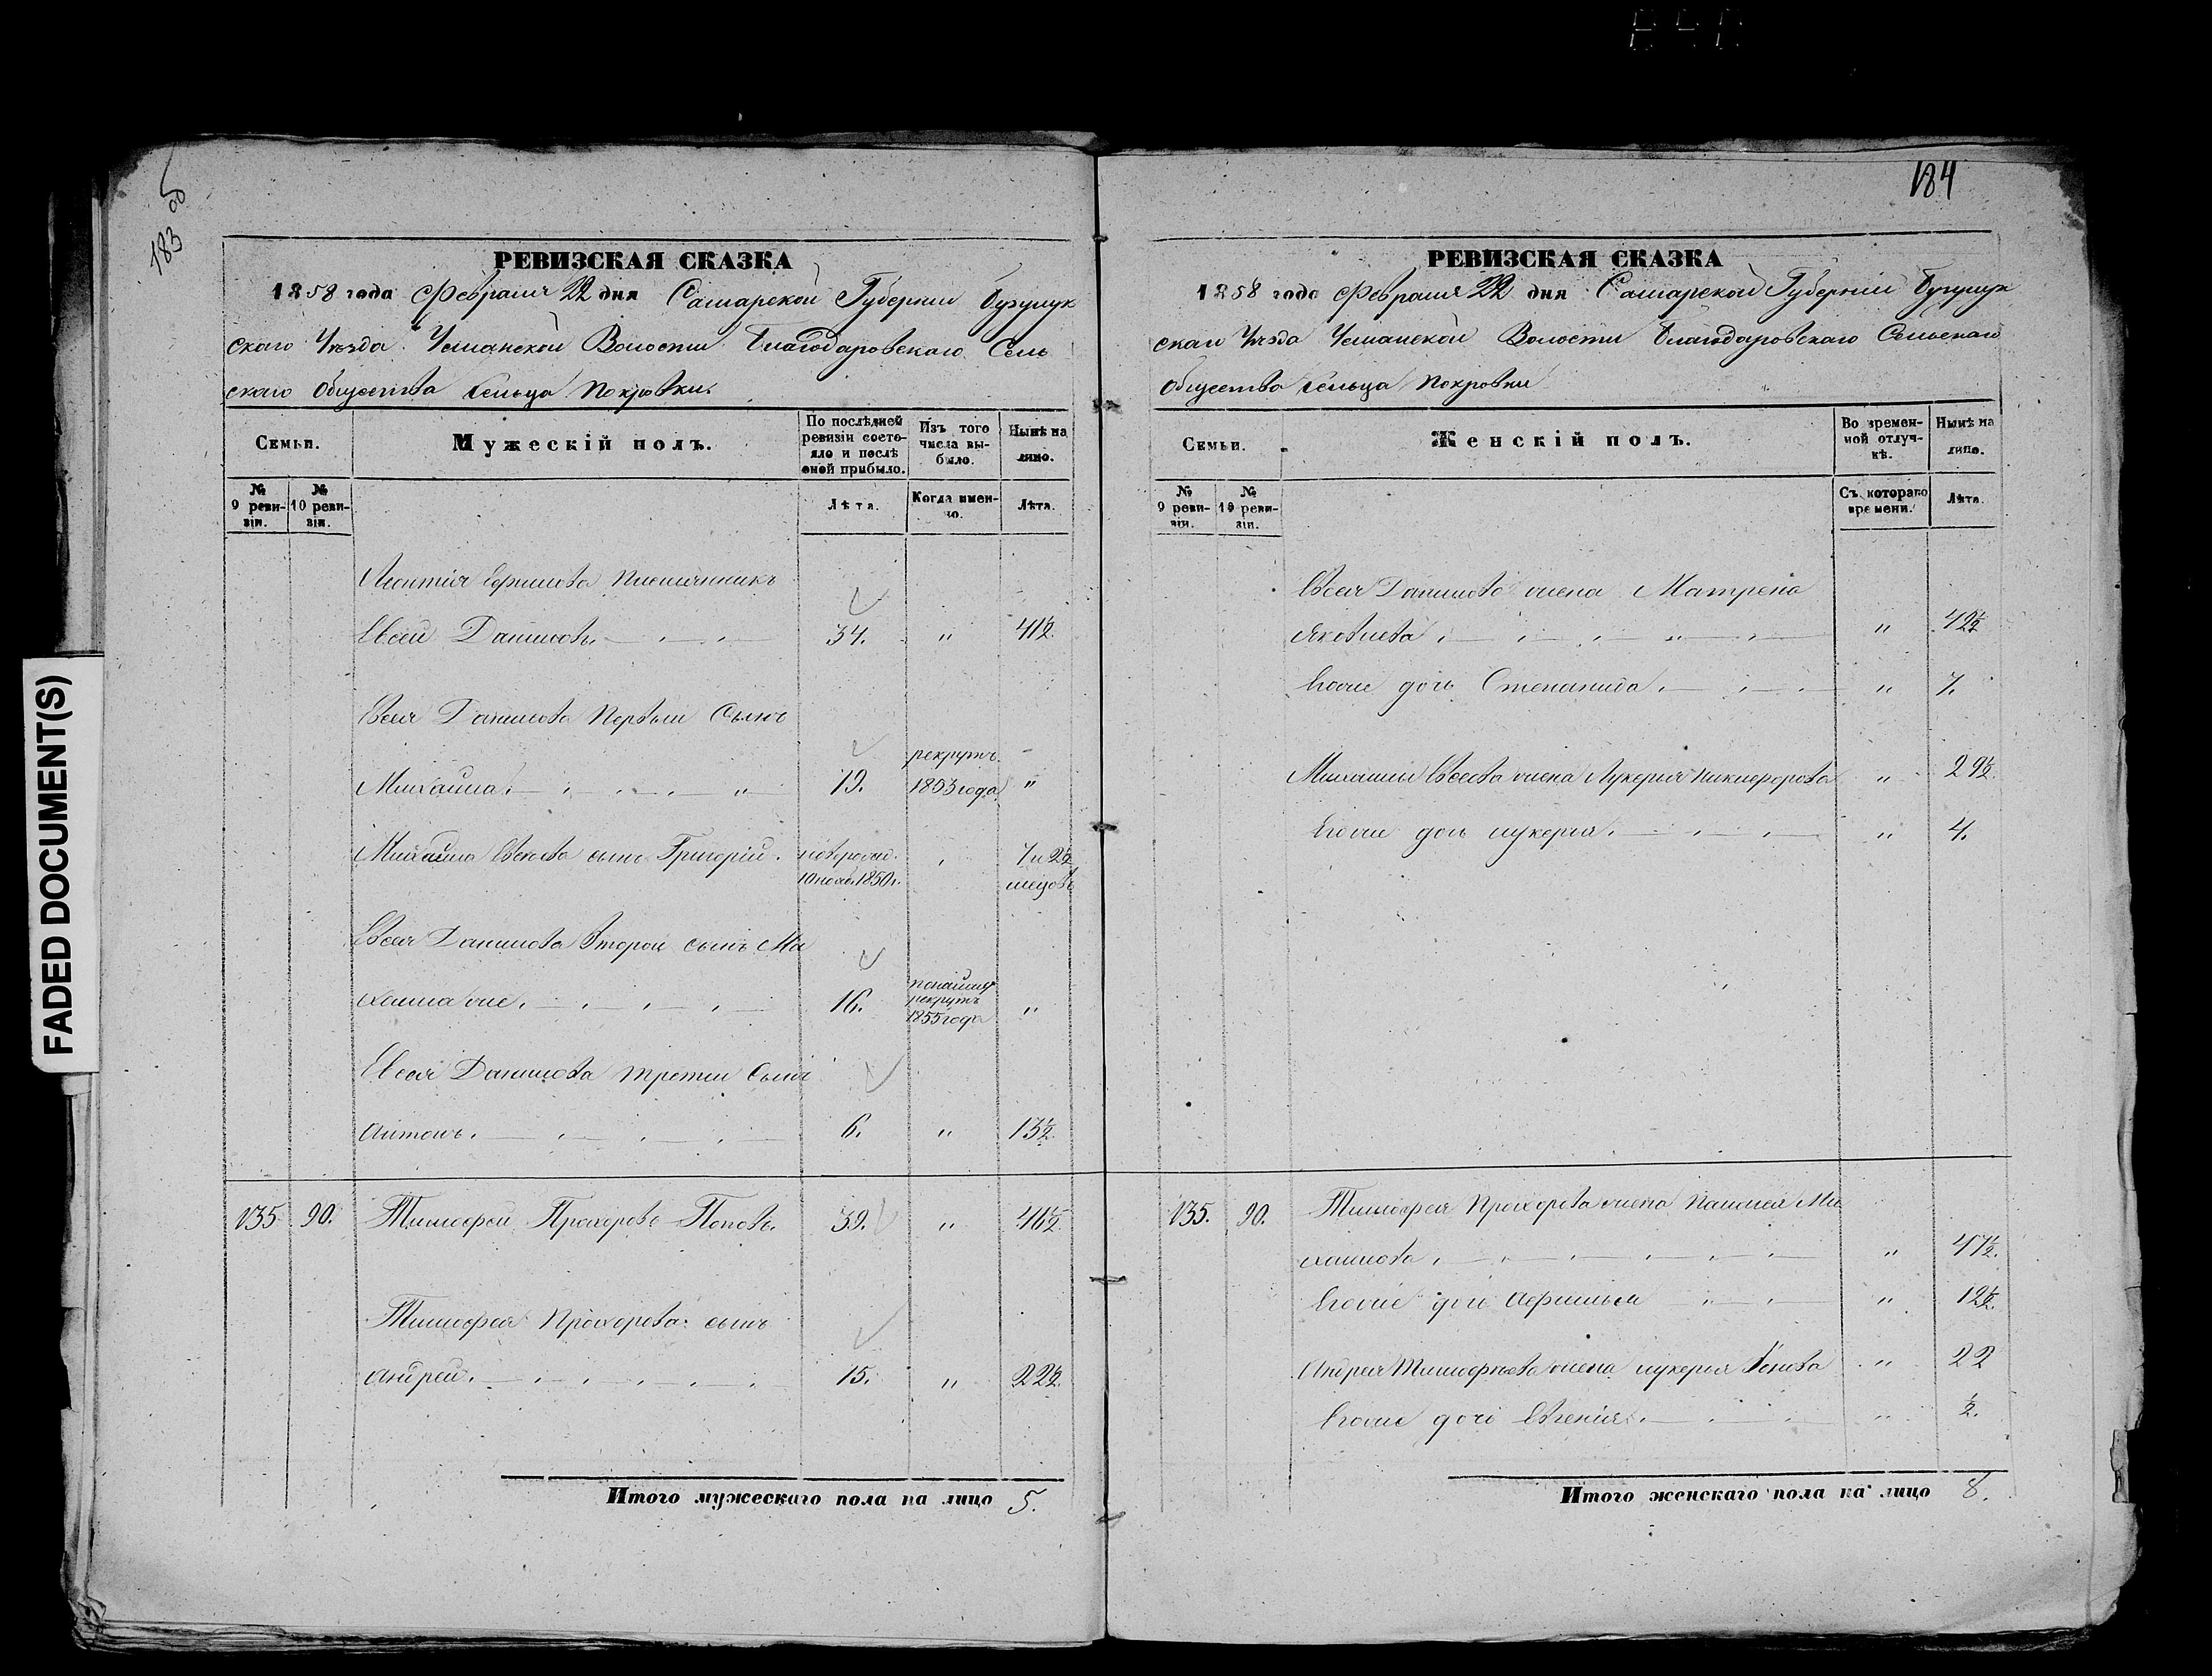 FADED DOCUMENT(S)
183 об
РЕВИЗСКАЯ СКАЗКА
1858 года Февраля 22 дня Самарской Губернии Бузулук
скаго Уѣзда Усманской Волости Благодаровскаго Сель
скаго Общества Сельца Покровки.
Семьи.
Мужескій полъ.
По послѣдней ревизіи состояло и послѣ оной прибыло.
Изъ того числа выбыло.
Нынѣ на лицо.
№ 9 ревизіи.
№ 10 ревизіи.
Лѣта.
Когда именно.
Лѣта.
Леонтія Ефимова Племянникъ
Евсей Даниловъ 34. " 41½
Евсея Данилова Первый Сынъ
рекрутъ
Михайла 19. 1853 года "
Михайла Евсеева сынъ Григорій. новорожд. 7 и 2½
10 нояб. 1850 г. месецовъ
Евсея Данилова Второй сынъ Ми
хайла же 16. рекрутъ 1855 года "
Евсея Данилова третій Сынъ
Антонъ. 6. " 13½
135 90. Тимофей Прохоровъ Поповъ. 39. " 46½
Тимофея Прохорова сынъ
Андрей. 15. " 22½
Итого мужескаго пола на лицо 5.
184
РЕВИЗСКАЯ СКАЗКА
1858 года Февраля 22 дня Самарской Губерніи Бузулук
скаго Уѣзда Усманской Волости Благодаровскаго Сельскаго
Общества Сельца Покровки
Семьи.
Женскій полъ.
Во временной отлучкѣ.
Нынѣ на лицо.
№ 9 ревизіи.
№ 10 ревизіи.
Съ котораго времени.
Лѣта.
Евсея Данилова жена Матрена
Яковлева " 42½
Ихоже дочь Степанида " 7.
Михайлы Евсеева жена Лукерья Никифорова " 29½
Ихоже дочь Лукерья. " 4.
135. 90. Тимофея Прохорова жена Ми
хайлова " 47½
Ихоже дочь Афимья " 12½
Андрея Тимофѣева жена Лукерья " 22
Ихоже дочь Евгенія " ½.
Итого женскаго пола на лицо 8.